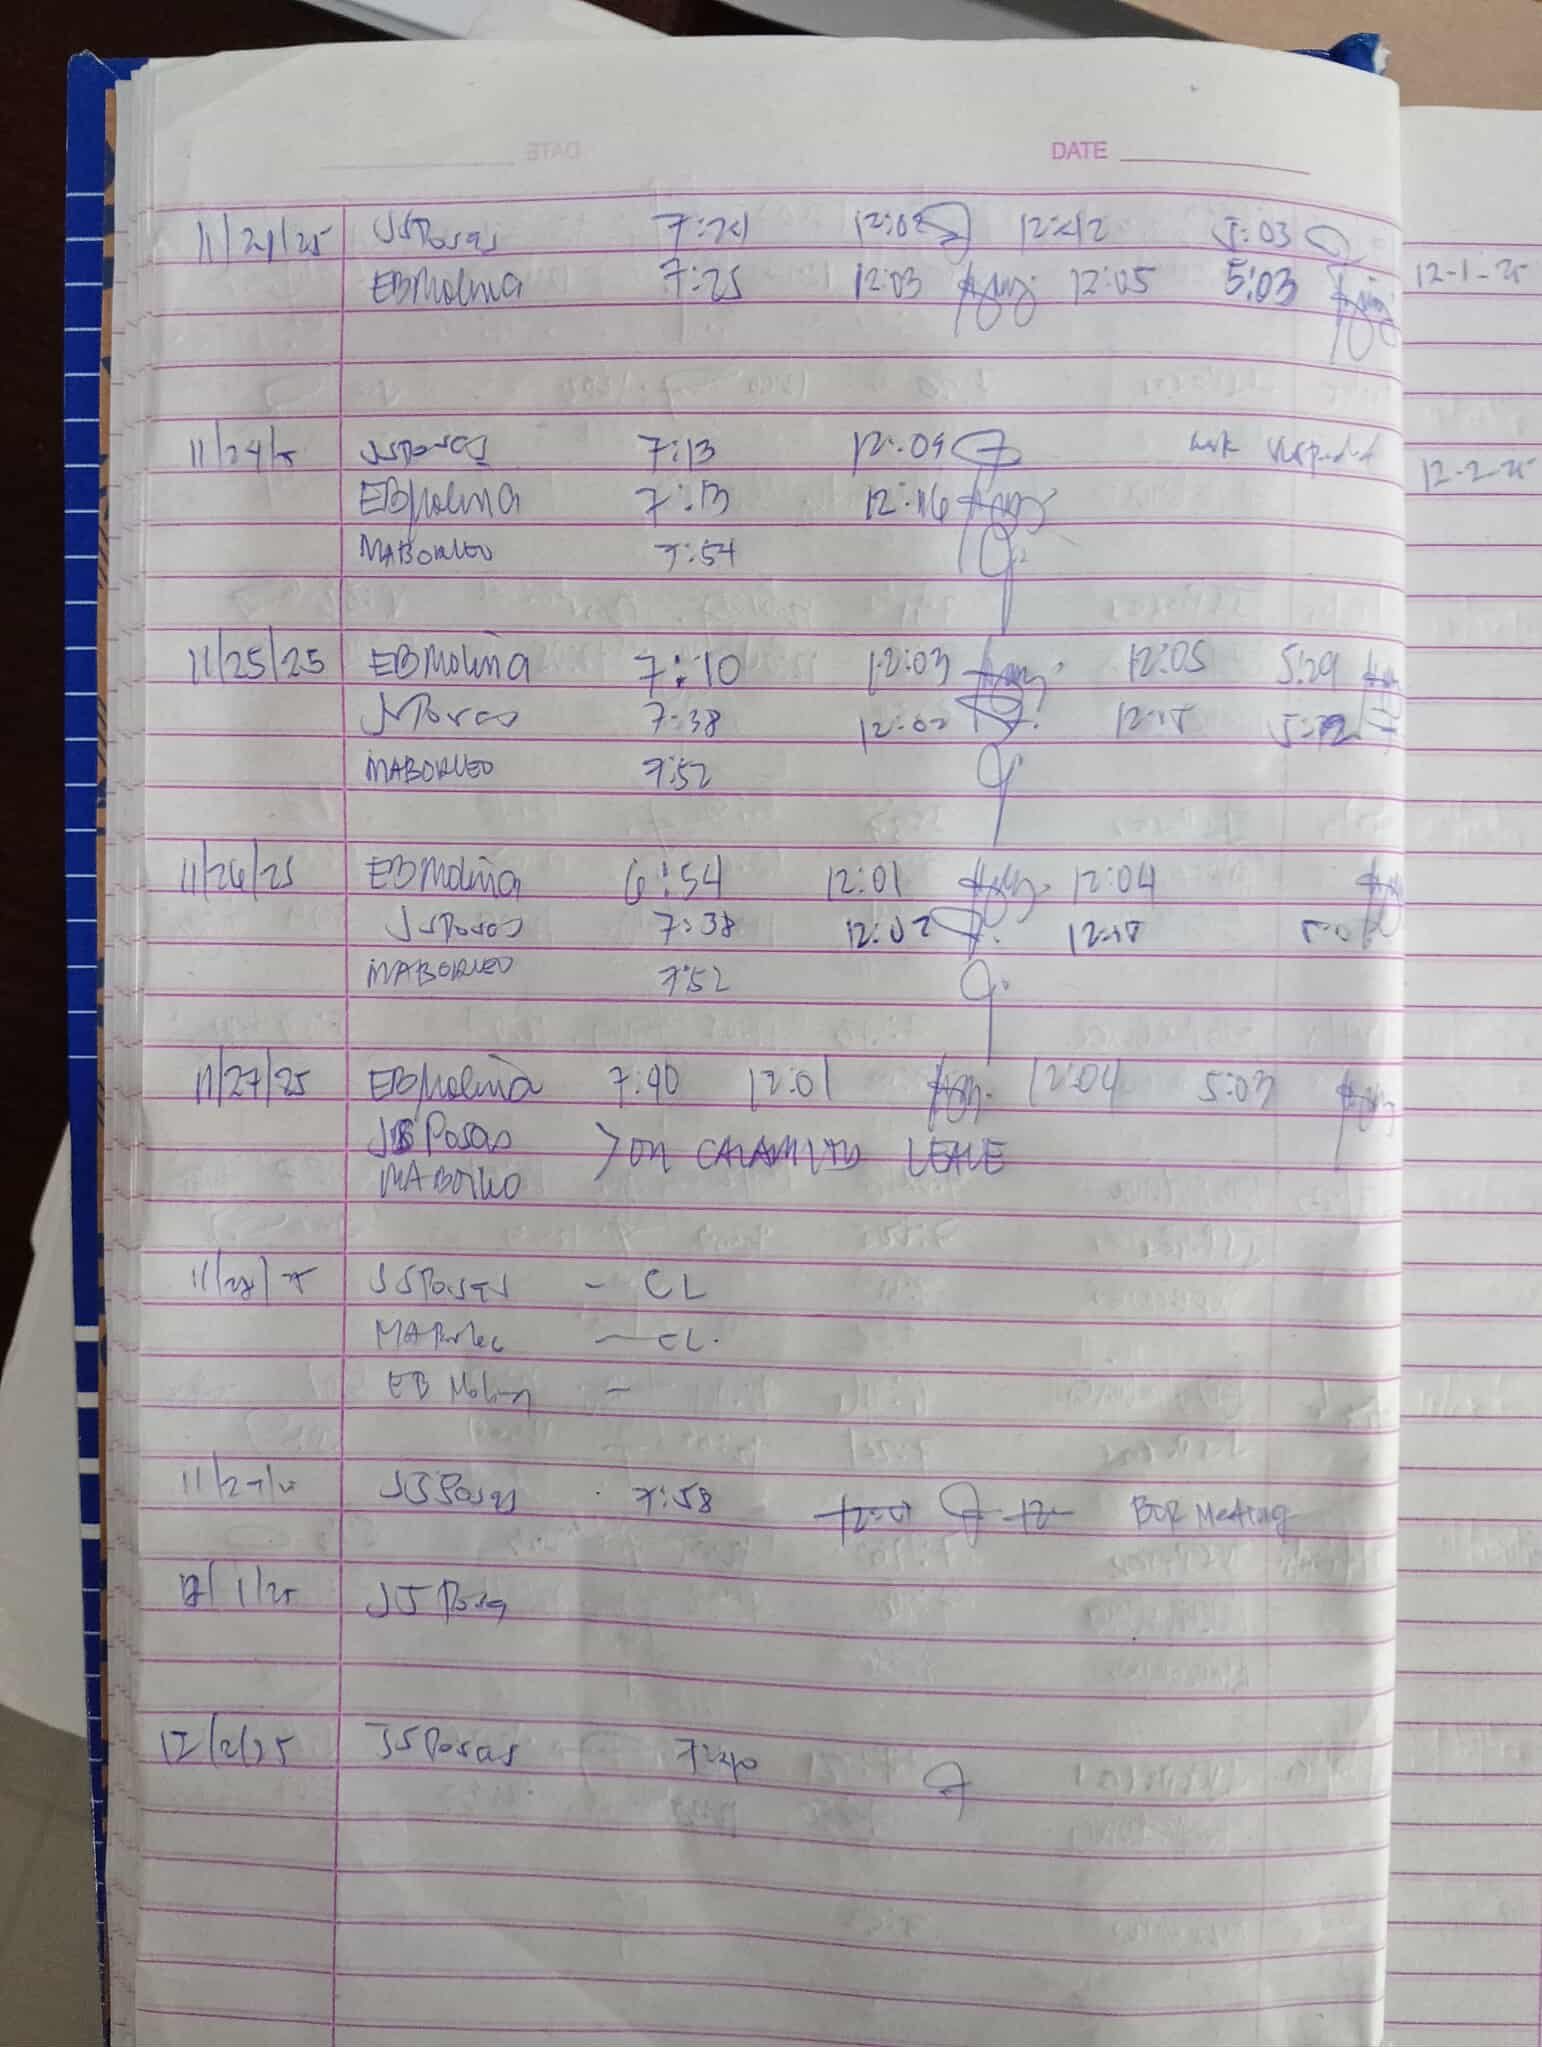 DATE
11/21/25 JSPosas 7:21 12:02 12:12 5:03
EBMolina 7:25 12:03 12:05 5:03
12-1-25
11/24/25 JSPosas 7:13 12:09 work suspended
12-2-25
EBMolina 7:13 12:16
MABorleo 7:54
11/25/25 EBMolina 7:10 12:03 12:05 5:29
JSPosas 7:38 12:02
MABORLEO 7:52
11/26/25 EBMolina 6:54 12:01 12:04
JSPosas 7:38 12:02
MABORLEO 7:52
11/27/25 EBMolina 7:40 12:01 12:04 5:03
JSPosas > ON CALAMITY LEAVE
MABorleo
11/28/25 JSPosas - CL
MABorleo - CL.
EB Molina -
JSPosas 7:58 BOR Meeting
12/1/25 JSPosas
12/2/25 JSPosas 7:40